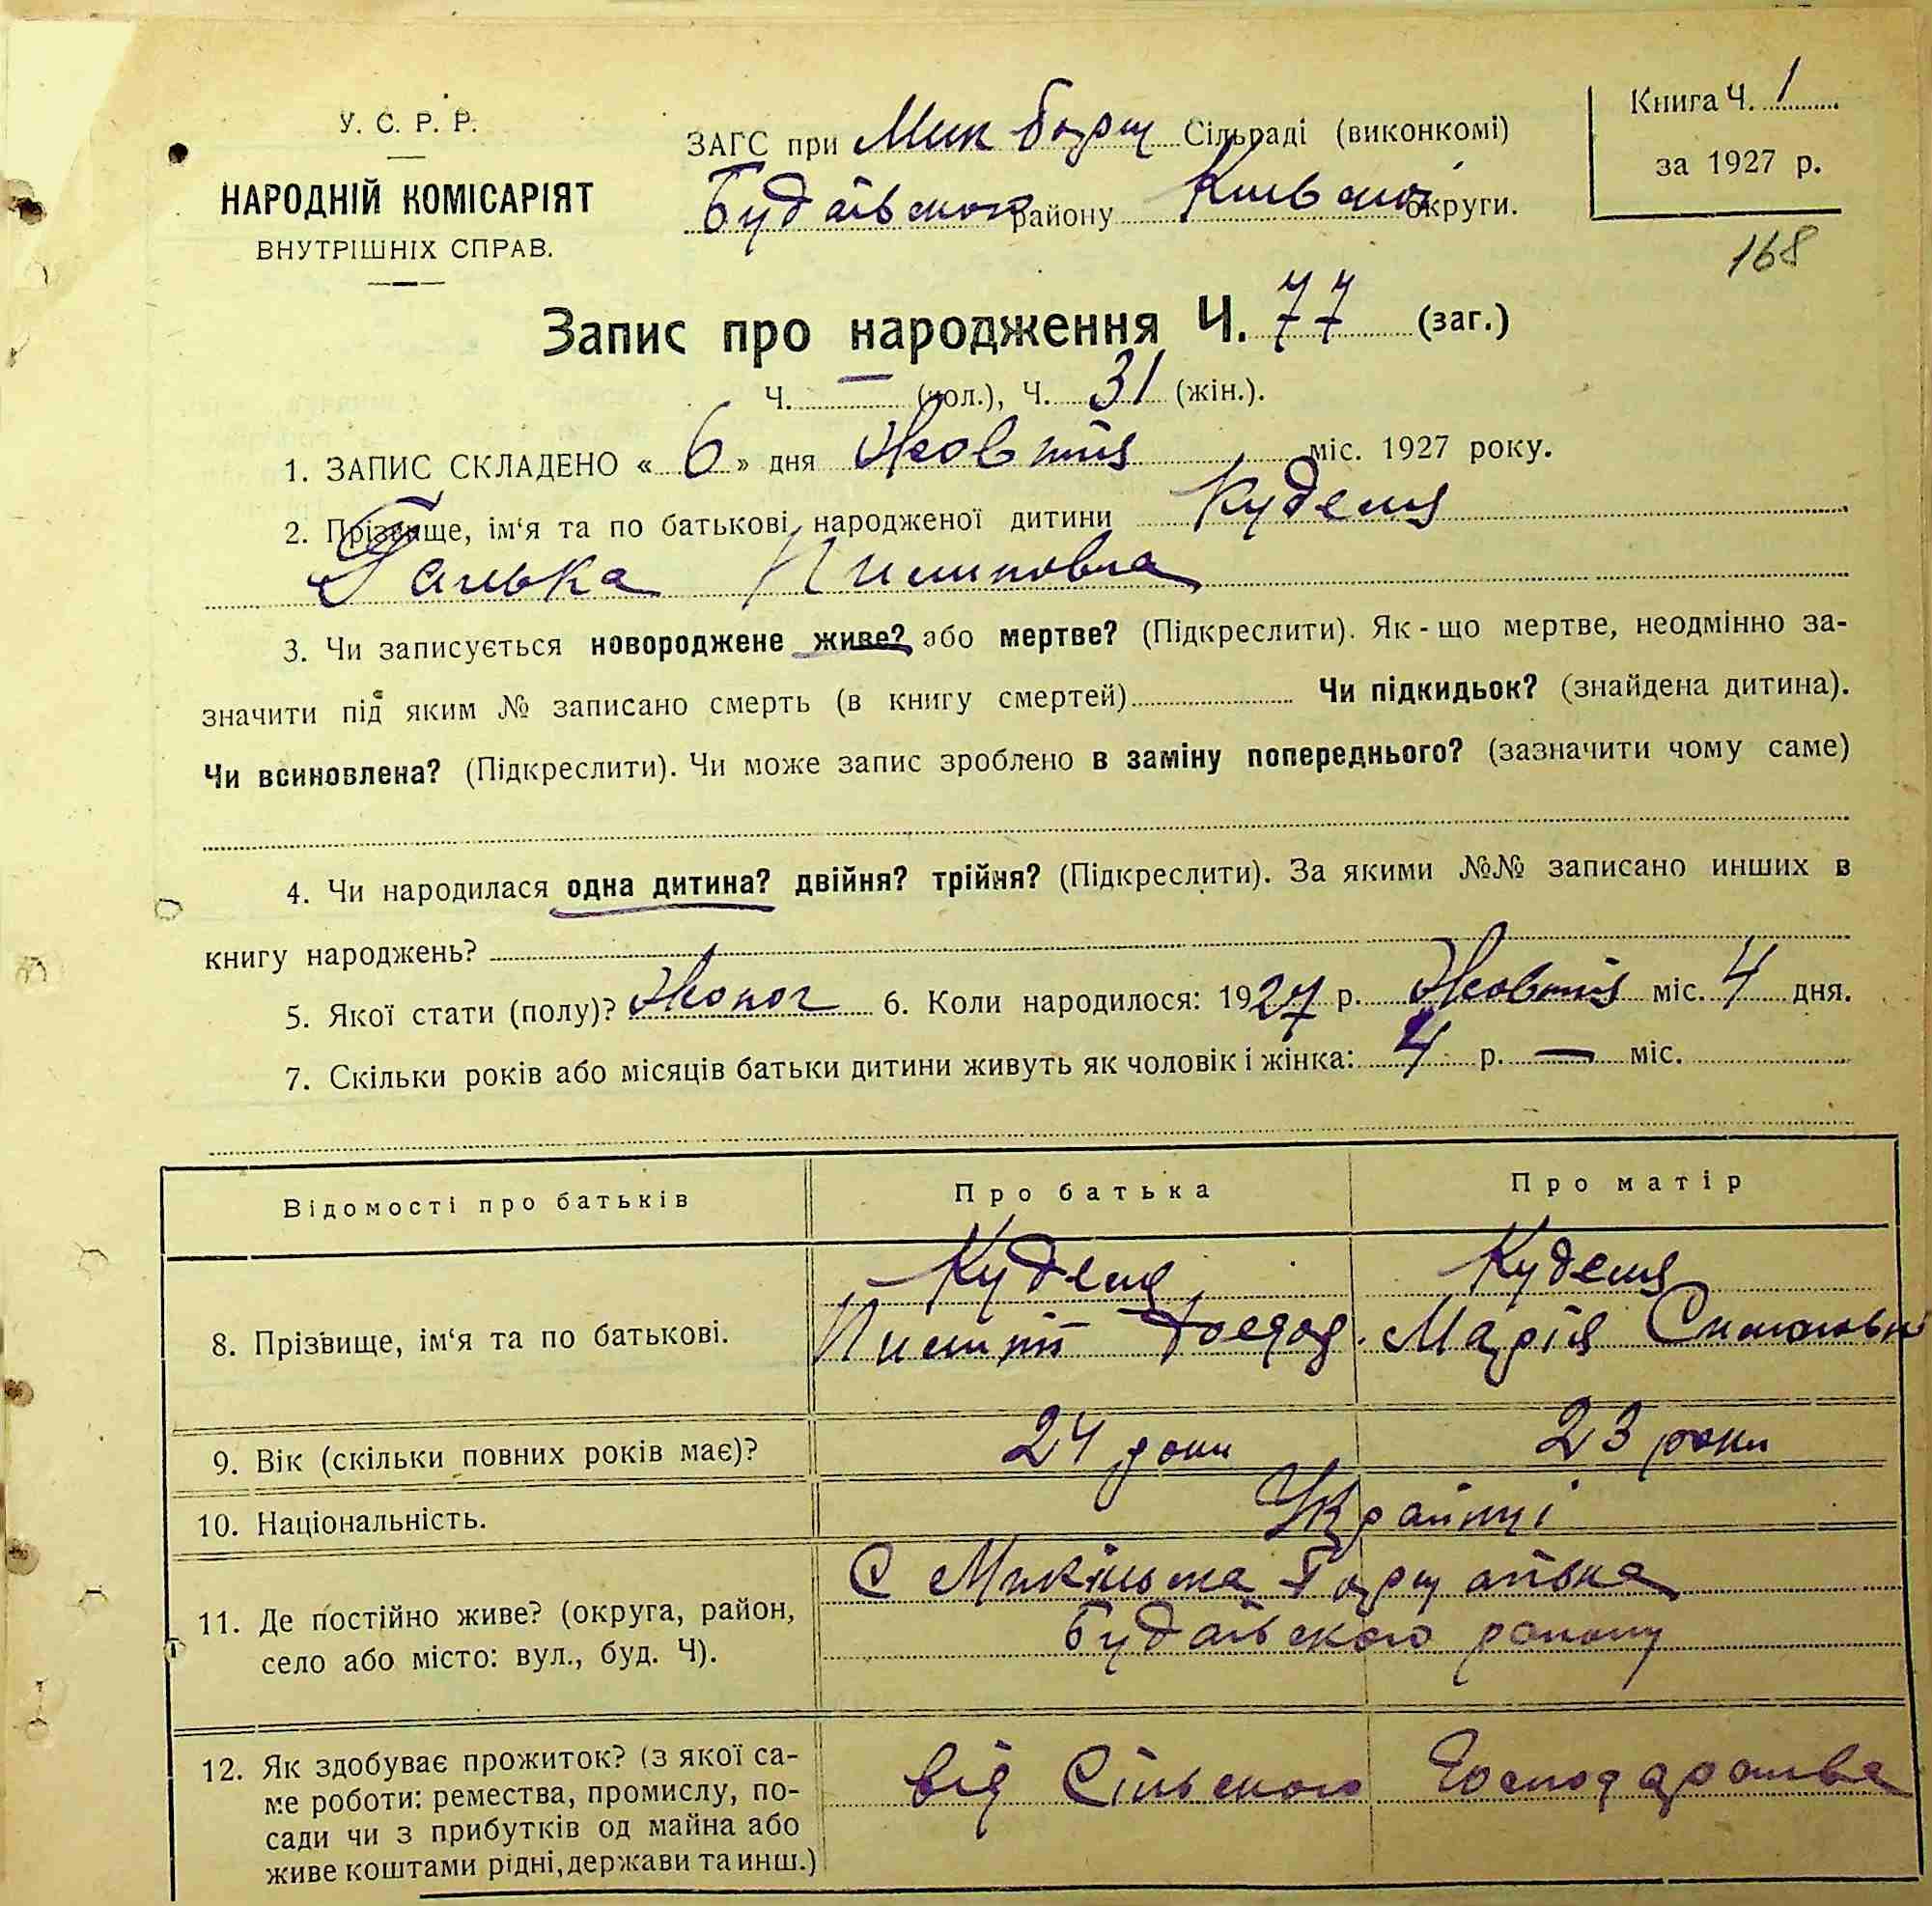 У. С. Р. Р.
НАРОДНІЙ КОМІСАРІЯТ
ВНУТРІШНІХ СПРАВ.
ЗАГС при Мик Борщ Сільраді (виконкомі)
Будаївськог району Київської округи.
Книга Ч. 1
за 1927 р.
168
Запис про народження Ч. 77 (заг.)
Ч. — (чол.), Ч. 31 (жін.).
1. ЗАПИС СКЛАДЕНО « 6 » дня Жовтня міс. 1927 року.
2. Прізвище, ім'я та по батькові народженої дитини Куделя
Галька Пилиповна
3. Чи записується новороджене живе? або мертве? (Підкреслити). Як-що мертве, неодмінно за-
значити під яким № записано смерть (в книгу смертей) Чи підкидьок? (знайдена дитина).
Чи всиновлена? (Підкреслити). Чи може запис зроблено в заміну попереднього? (зазначити чому саме)
4. Чи народилася одна дитина? двійня? трійня? (Підкреслити). За якими №№ записано инших в
книгу народжень?
5. Якої стати (полу)? Жоног 6. Коли народилося: 1927 р. Жовтня міс. 4 дня.
7. Скільки років або місяців батьки дитини живуть як чоловік і жінка: 4 р. — міс.
Відомості про батьків Про батька Про матір
Куделя Куделя
8. Прізвище, ім'я та по батькові. Пилип Марія
9. Вік (скільки повних років має)? 24 роки 23 роки
10. Національність. Українці
С Микільска Борщагівка
11. Де постійно живе? (округа, район,
село або місто: вул., буд. Ч). Будаївського району
12. Як здобуває прожиток? (з якої са-
ме роботи: ремества, промислу, по-
сади чи з прибутків од майна або
живе коштами рідні, держави та инш.)
від Сільського Господарства